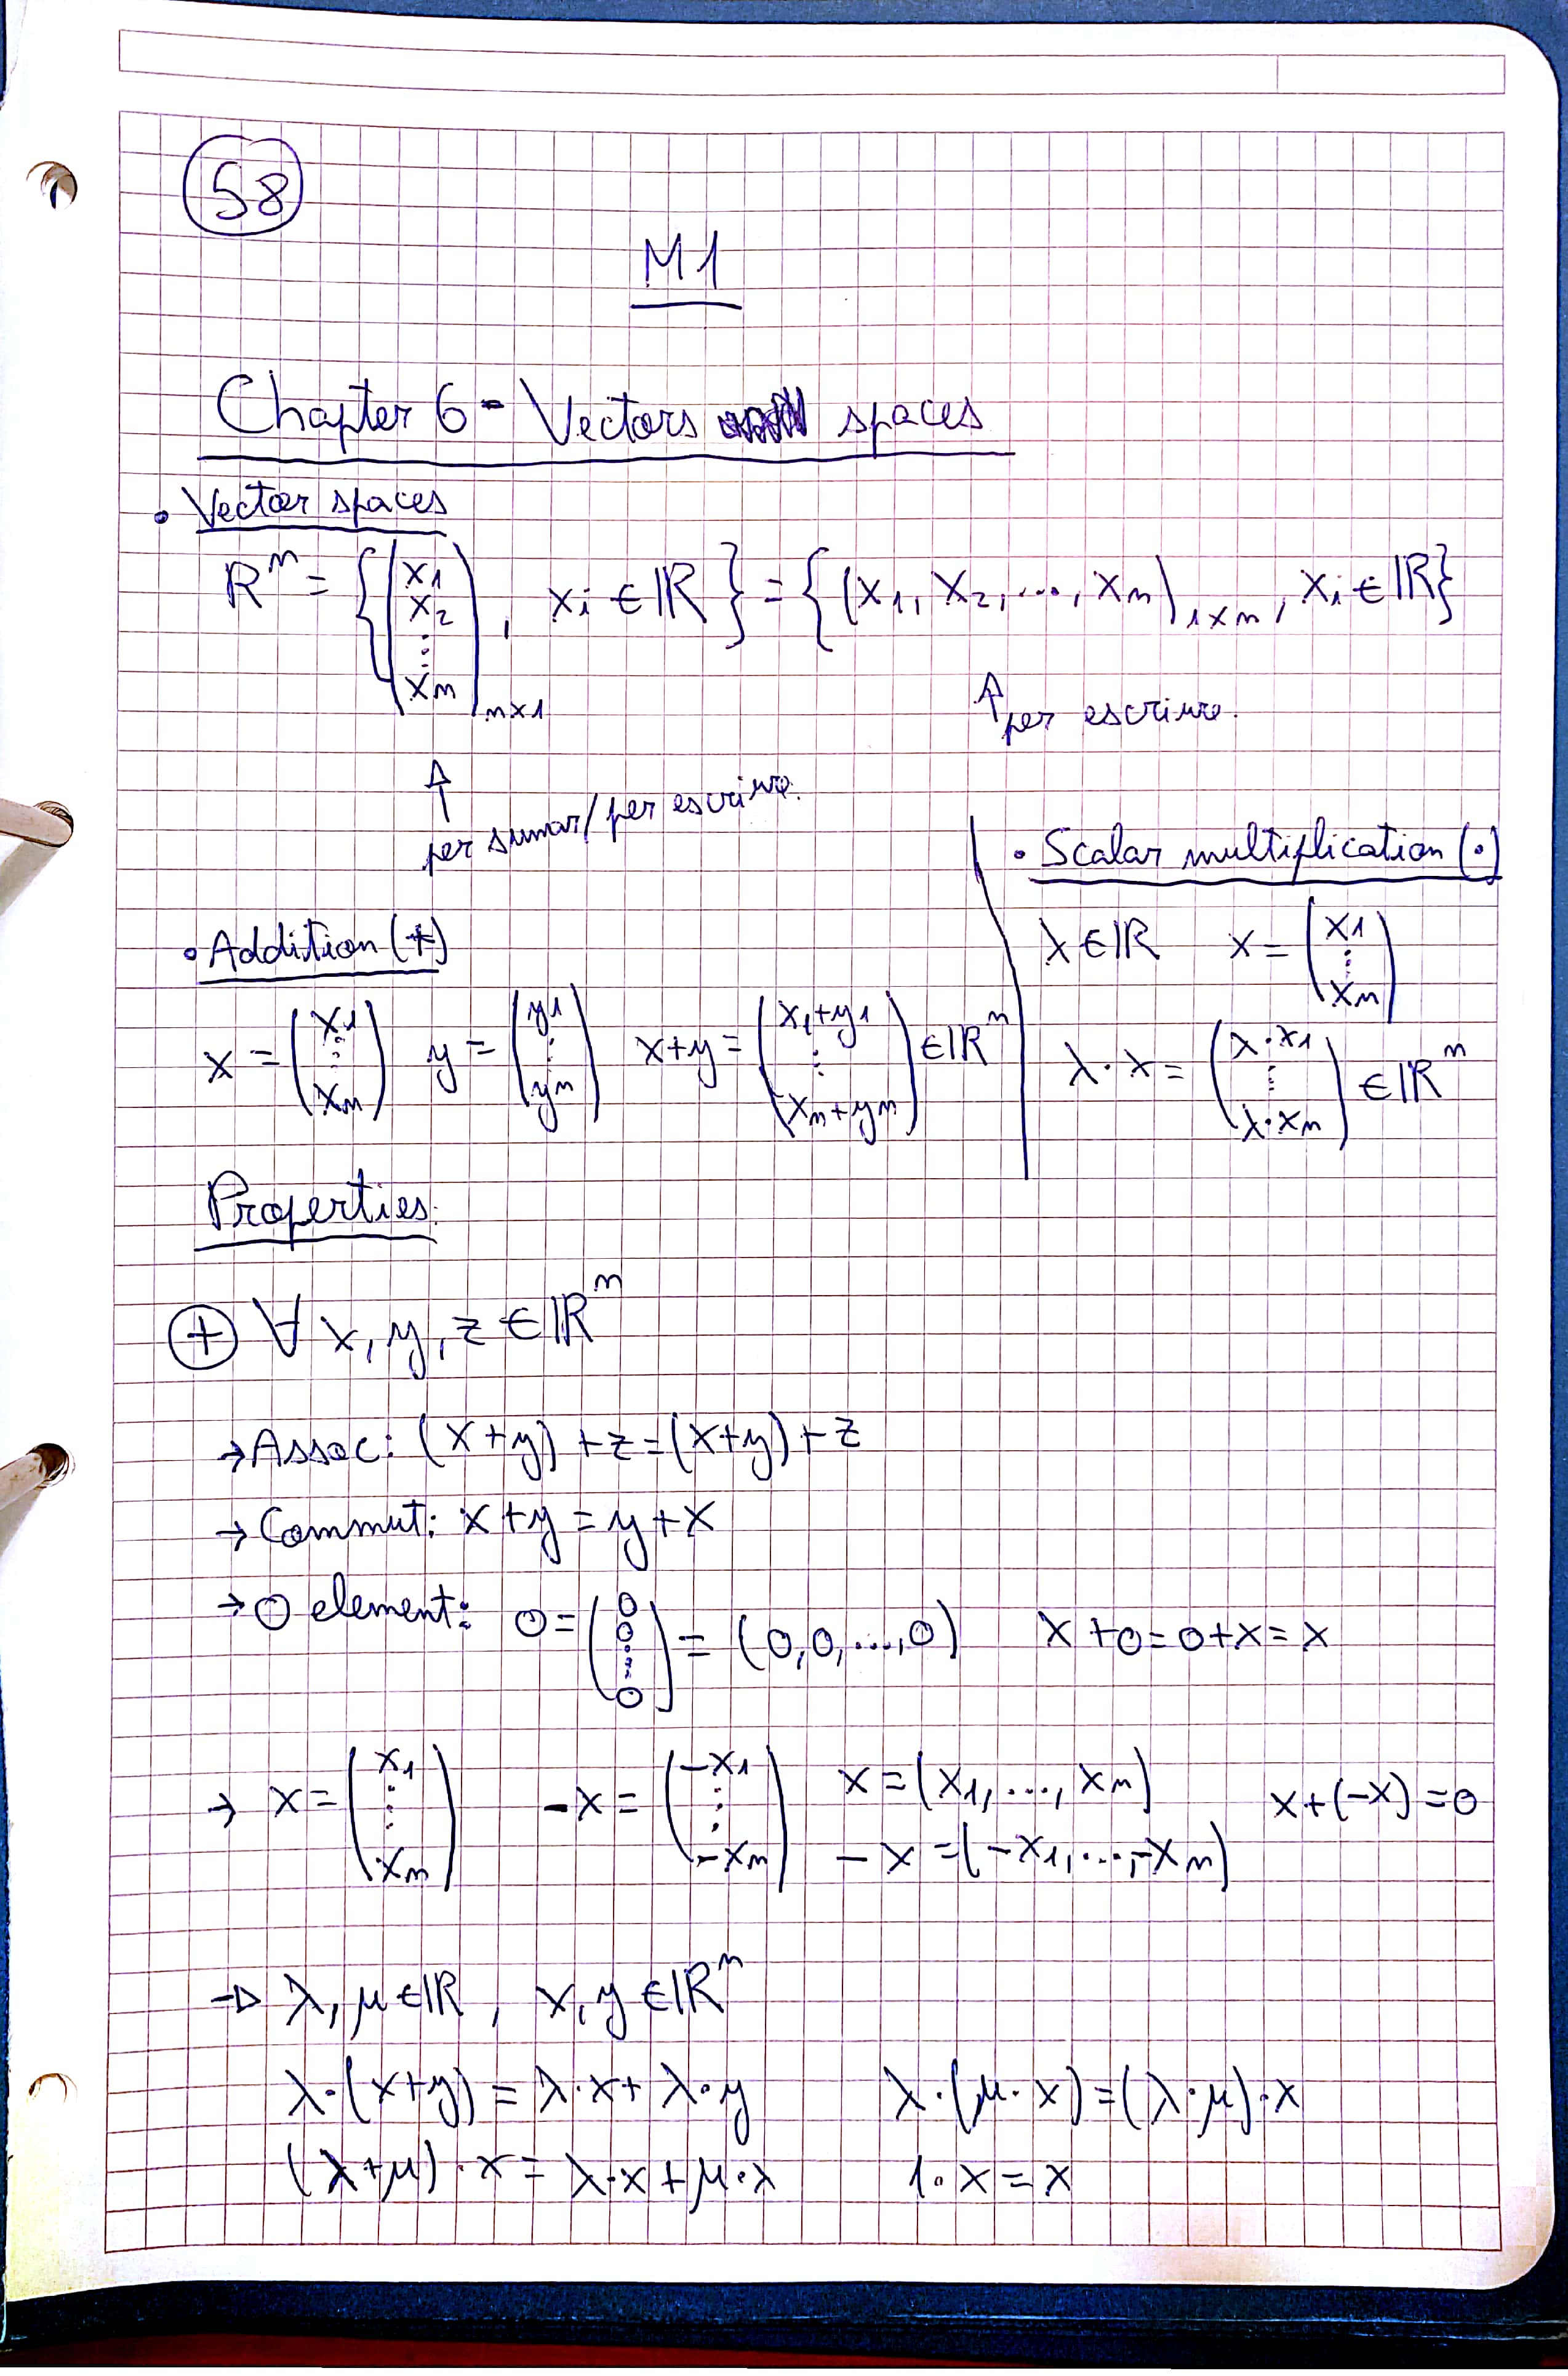 58
M1
Chapter 6 - Vectors spaces
• Vector spaces
ℝⁿ = { (x₁ x₂ ⋮ xₙ)ₙₓ₁ , xᵢ ∈ ℝ } = { (x₁, x₂, ..., xₙ)₁ₓₙ , xᵢ ∈ ℝ }
↑ per escriure.
↑ per sumar/per escriure.
• Addition (+)
x = (x₁ ⋮ xₙ) y = (y₁ ⋮ yₙ) x+y = (x₁+y₁ ⋮ xₙ+yₙ) ∈ ℝⁿ
• Scalar multiplication (·)
λ ∈ ℝ x = (x₁ ⋮ xₙ)
λ · x = (λ·x₁ ⋮ λ·xₙ) ∈ ℝⁿ
Properties:
⊕ ∀ x, y, z ∈ ℝⁿ
→ Assoc: (x+y)+z=(x+y)+z
→ Commut: x+y = y+x
→ 0 element: 0 = (0 0 ⋮ 0) = (0,0,...,0) x+0=0+x=x
→ x = (x₁ ⋮ xₙ) -x = (-x₁ ⋮ -xₙ) x = (x₁, ..., xₙ) x+(-x)=0
-x = (-x₁, ..., -xₙ)
→ λ, μ ∈ ℝ , x, y ∈ ℝⁿ
λ·(x+y) = λ·x + λ·y λ·(μ·x)=(λ·μ)·x
(λ+μ)·x = λ·x + μ·x 1·x = x